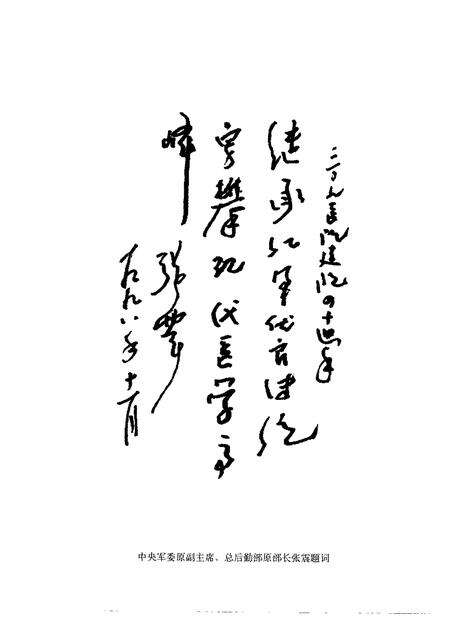 二〇九医院建院四十周年
继承红军优良传统
勇攀现代医学高
峰
张震
一九九八年十一月
中央军委原副主席、总后勤部原部长张震题词